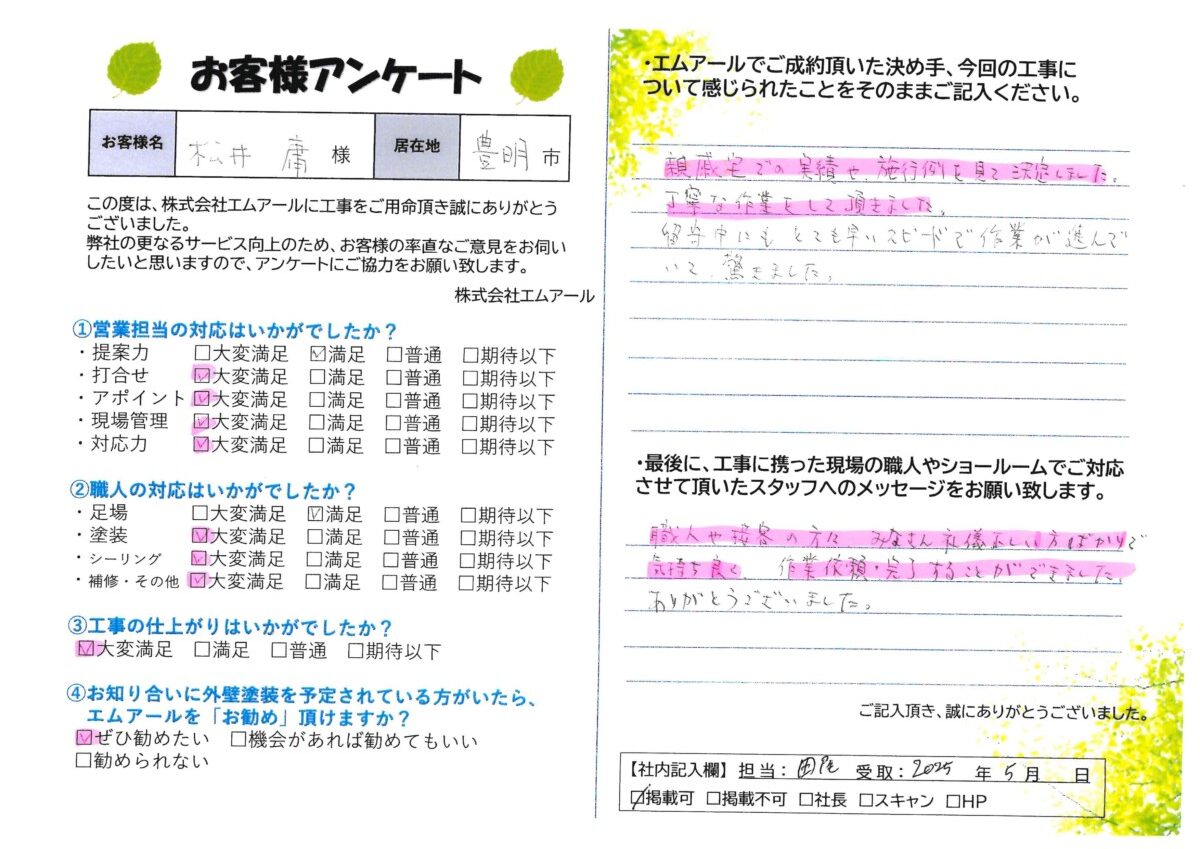 お客様アンケート
お客様名 松井 庸 様 居在地 豊明 市
この度は、株式会社エムアールに工事をご用命頂き誠にありがとう
ございました。
弊社の更なるサービス向上のため、お客様の率直なご意見をお伺い
したいと思いますので、アンケートにご協力をお願い致します。
株式会社エムアール
①営業担当の対応はいかがでしたか？
・提案力 □大変満足 ☑満足 □普通 □期待以下
・打合せ ☑大変満足 □満足 □普通 □期待以下
・アポイント ☑大変満足 □満足 □普通 □期待以下
・現場管理 ☑大変満足 □満足 □普通 □期待以下
・対応力 ☑大変満足 □満足 □普通 □期待以下
②職人の対応はいかがでしたか？
・足場 □大変満足 ☑満足 □普通 □期待以下
・塗装 ☑大変満足 □満足 □普通 □期待以下
・シーリング ☑大変満足 □満足 □普通 □期待以下
・補修・その他 ☑大変満足 □満足 □普通 □期待以下
③工事の仕上がりはいかがでしたか？
☑大変満足 □満足 □普通 □期待以下
④お知り合いに外壁塗装を予定されている方がいたら、
エムアールを「お勧め」頂けますか？
☑ぜひ勧めたい □機会があれば勧めてもいい
□勧められない
・エムアールでご成約頂いた決め手、今回の工事に
ついて感じられたことをそのままご記入ください。
親戚宅での実績や、施行例を見て決定しました。
丁寧な作業をして頂きました。
留守中にもとても早いスピードで作業が進んで
いて、驚きました。
・最後に、工事に携った現場の職人やショールームでご対応
させて頂いたスタッフへのメッセージをお願い致します。
職人や接客の方は、みなさん礼儀正しい方ばかりで
気持ち良く、作業依頼・完了することができました。
ありがとうございました。
ご記入頂き、誠にありがとうございました。
【社内記入欄】担当： 受取：2025 年 5 月 日
☑掲載可 □掲載不可 □社長 □スキャン □HP